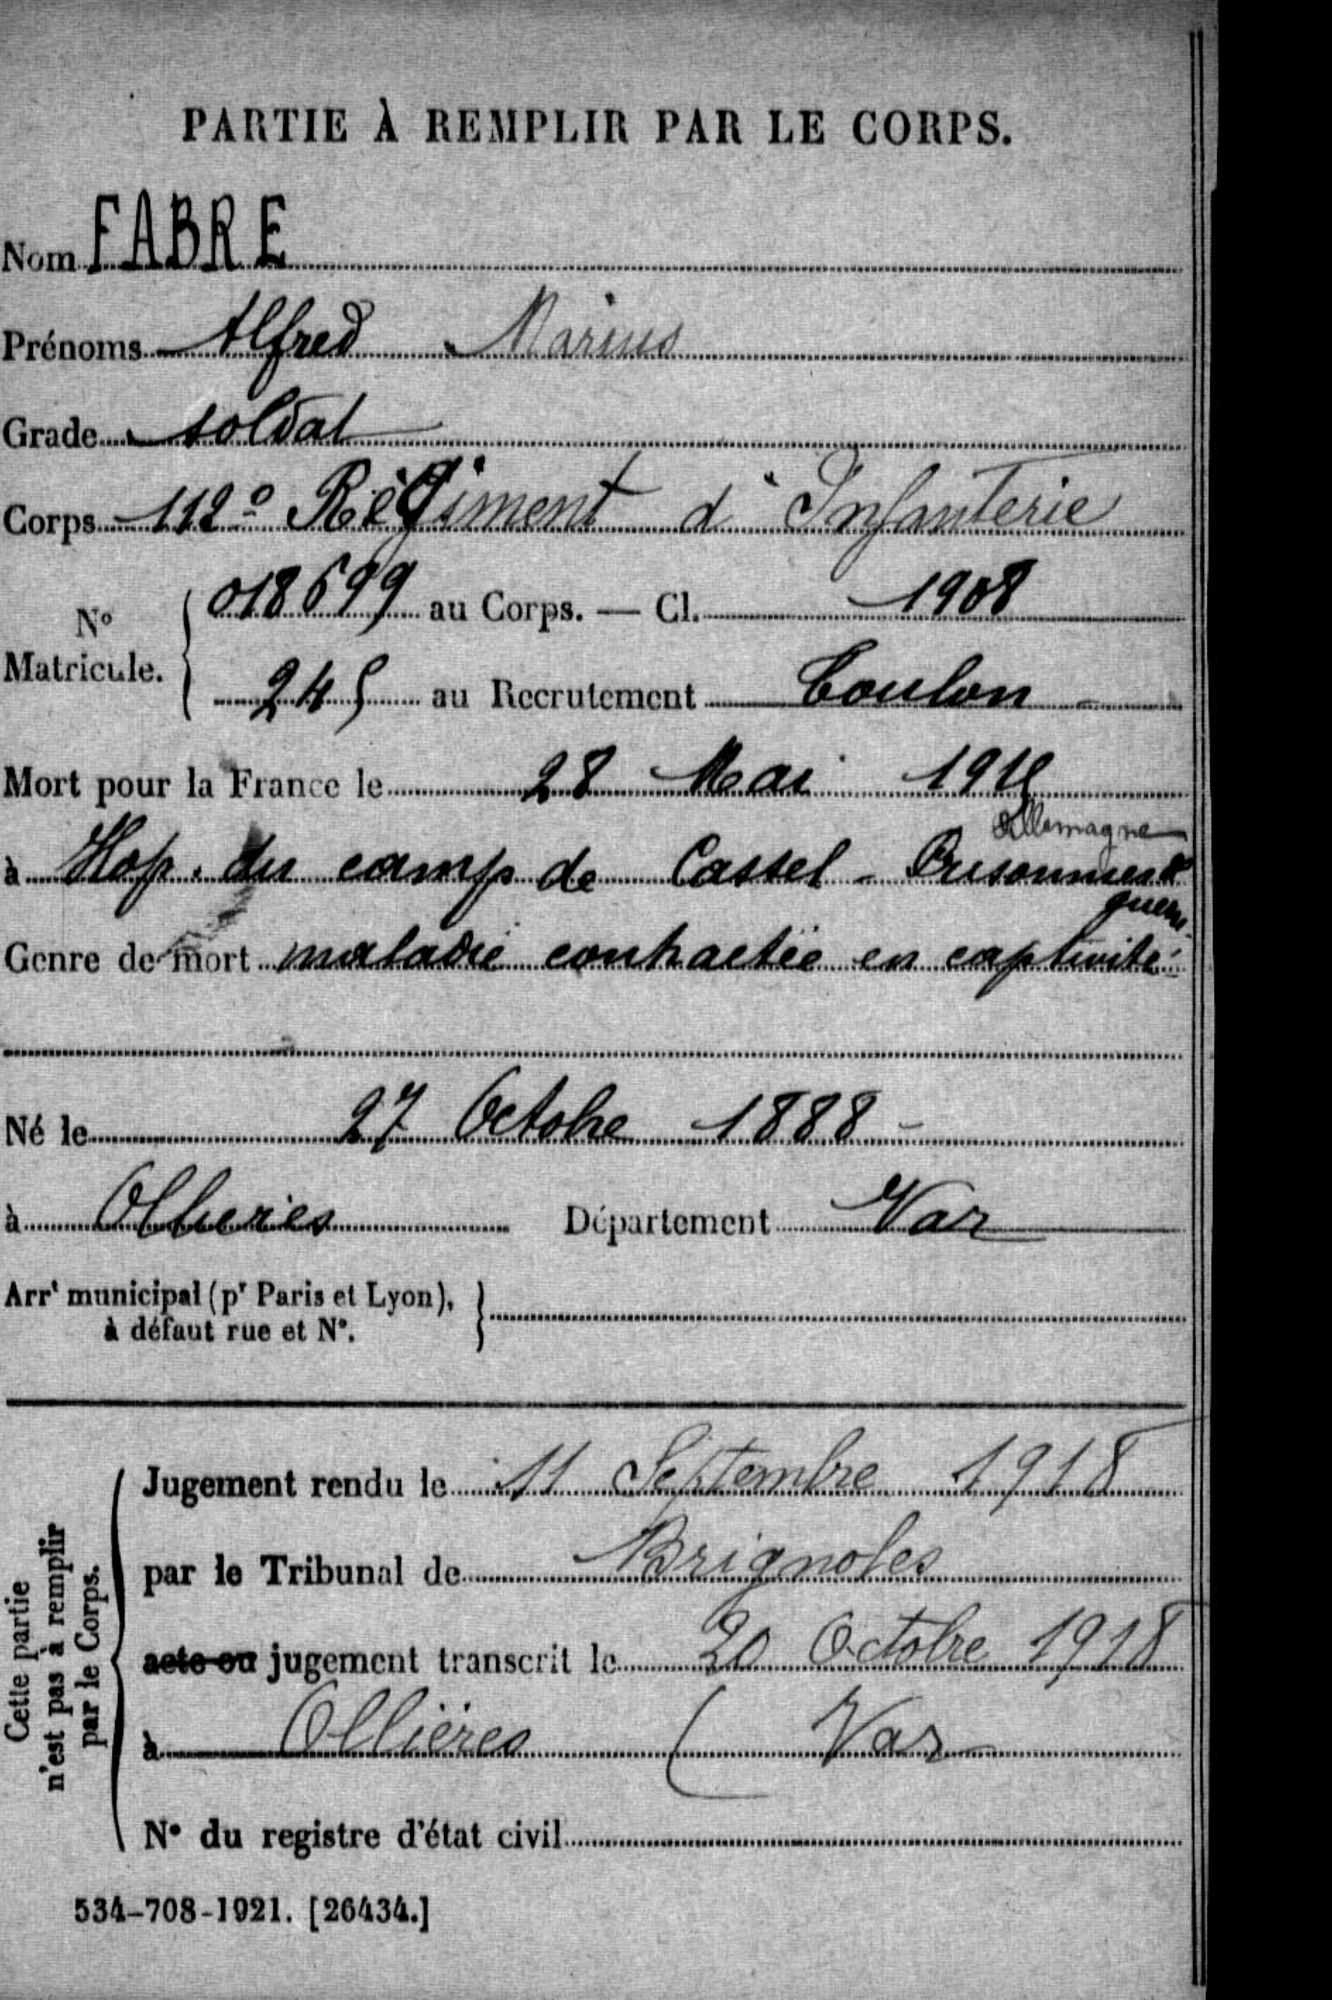 PARTIE À REMPLIR PAR LE CORPS.
Nom FABRE
Prénoms Alfred Marius
Grade soldat
Corps 112e Régiment d'Infanterie
No Matricule. 018699 au Corps. — Cl. 1908
245 au Recrutement Toulon -
Mort pour la France le 28 Mai
Allemagne
à Hop. du camp de Cassel - Prisonnier de
guerre
Genre de mort maladie contractée en captivité
Né le 27 Octobre 1888 -
à Ollières Département Var
Arrt municipal (pr Paris et Lyon),
à défaut rue et No.
Cette partie
n'est pas à remplir
par le Corps.
Jugement rendu le 11 Septembre 1918
par le Tribunal de Brignoles
acte ou jugement transcrit le 20 Octobre 1918
à Ollières (Var
No du registre d'état civil
534-708-1921. [26434.]